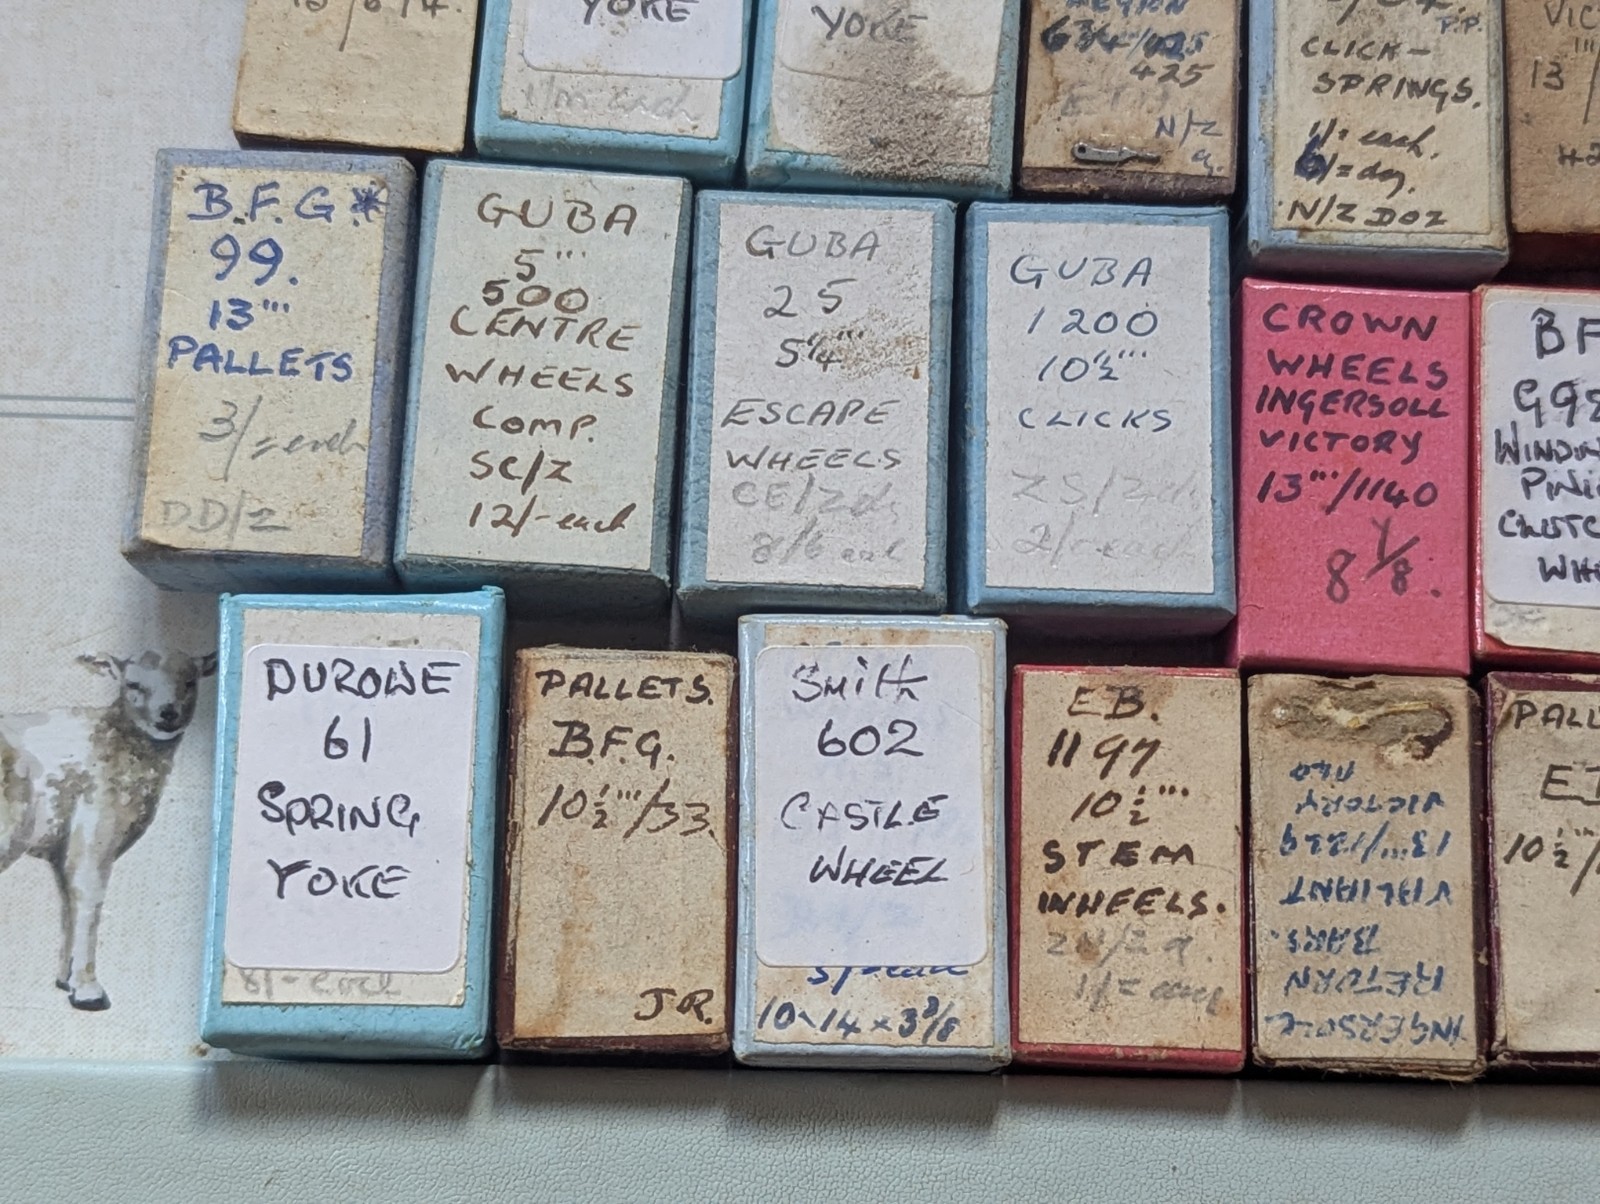 YOKE
YOKE
6¾/125
425
N/Z
CLICK-
SPRINGS.
1/= each.
6/= doz.
N/Z DOZ
VIC
13'''/
B.F.G.*
99.
13'''
PALLETS
3/= each
DD/2
GUBA
5'''
500
CENTRE
WHEELS
COMP.
SC/Z
12/- each
GUBA
25
5¼'''
ESCAPE
WHEELS
CE/Z
8/6 each
GUBA
1200
10½'''
CLICKS
ZS/Z
2/- each
CROWN
WHEELS
INGERSOLL
VICTORY
13'''/1140
8 1/8.
BF
WINDIN
PINI
CLUTC
WHE
DUROWE
61
SPRING
YOKE
8/- each
PALLETS.
B.F.G.
10½'''/33.
J.R.
Smith
602
CASTLE
WHEEL
10 14 x 3 3/8
EB.
1197
10½'''
STEM
WHEELS.
1/= each
INGERSOLL
RETURN
BARS.
VALIANT
13'''/1229
VICTORY
PALL
10½'''/